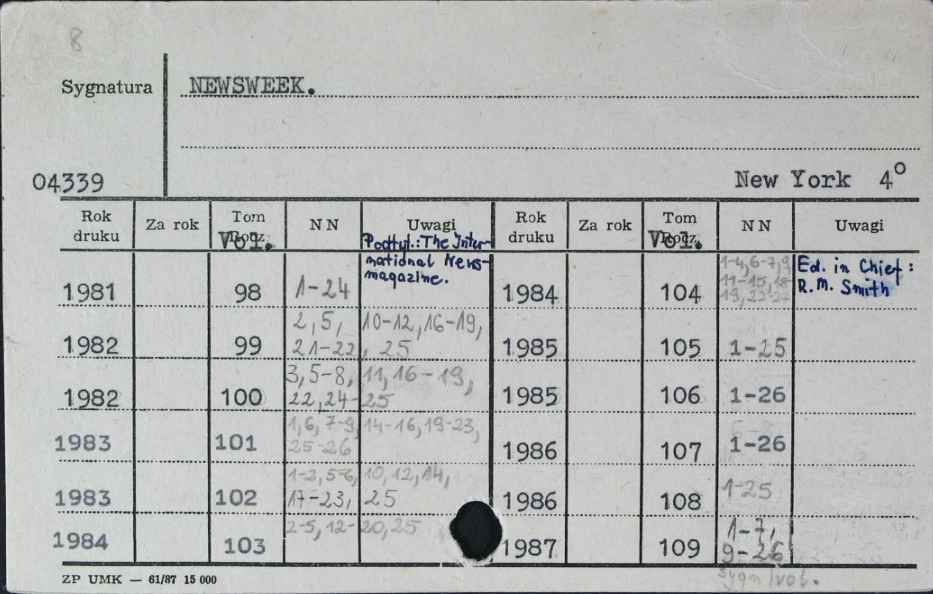 8
Sygnatura NEWSWEEK.
04339 New York 4°
Rok druku Za rok Tom Vol. NN Uwagi Rok druku Za rok Tom Vol. NN Uwagi
Podtyt.: The International News-magazine.
1981 98 1-24 1984 104 1-4,6-7,9 11-15, Ed. in Chief: R.M. Smith
1982 99 2,5, 10-12,16-19, 21-22, 25 1985 105 1-25
1982 100 3,5-8, 11, 16-19, 22,24-25 1985 106 1-26
1983 101 1,6,7-9, 14-16,19-23, 25-26 1986 107 1-26
1983 102 1-2,5-6, 10,12,14, 17-23, 25 1986 108 1-25
1984 103 2-5,12-20,25 1987 109 1-7, 9-26
ZP UMK — 61/87 15 000